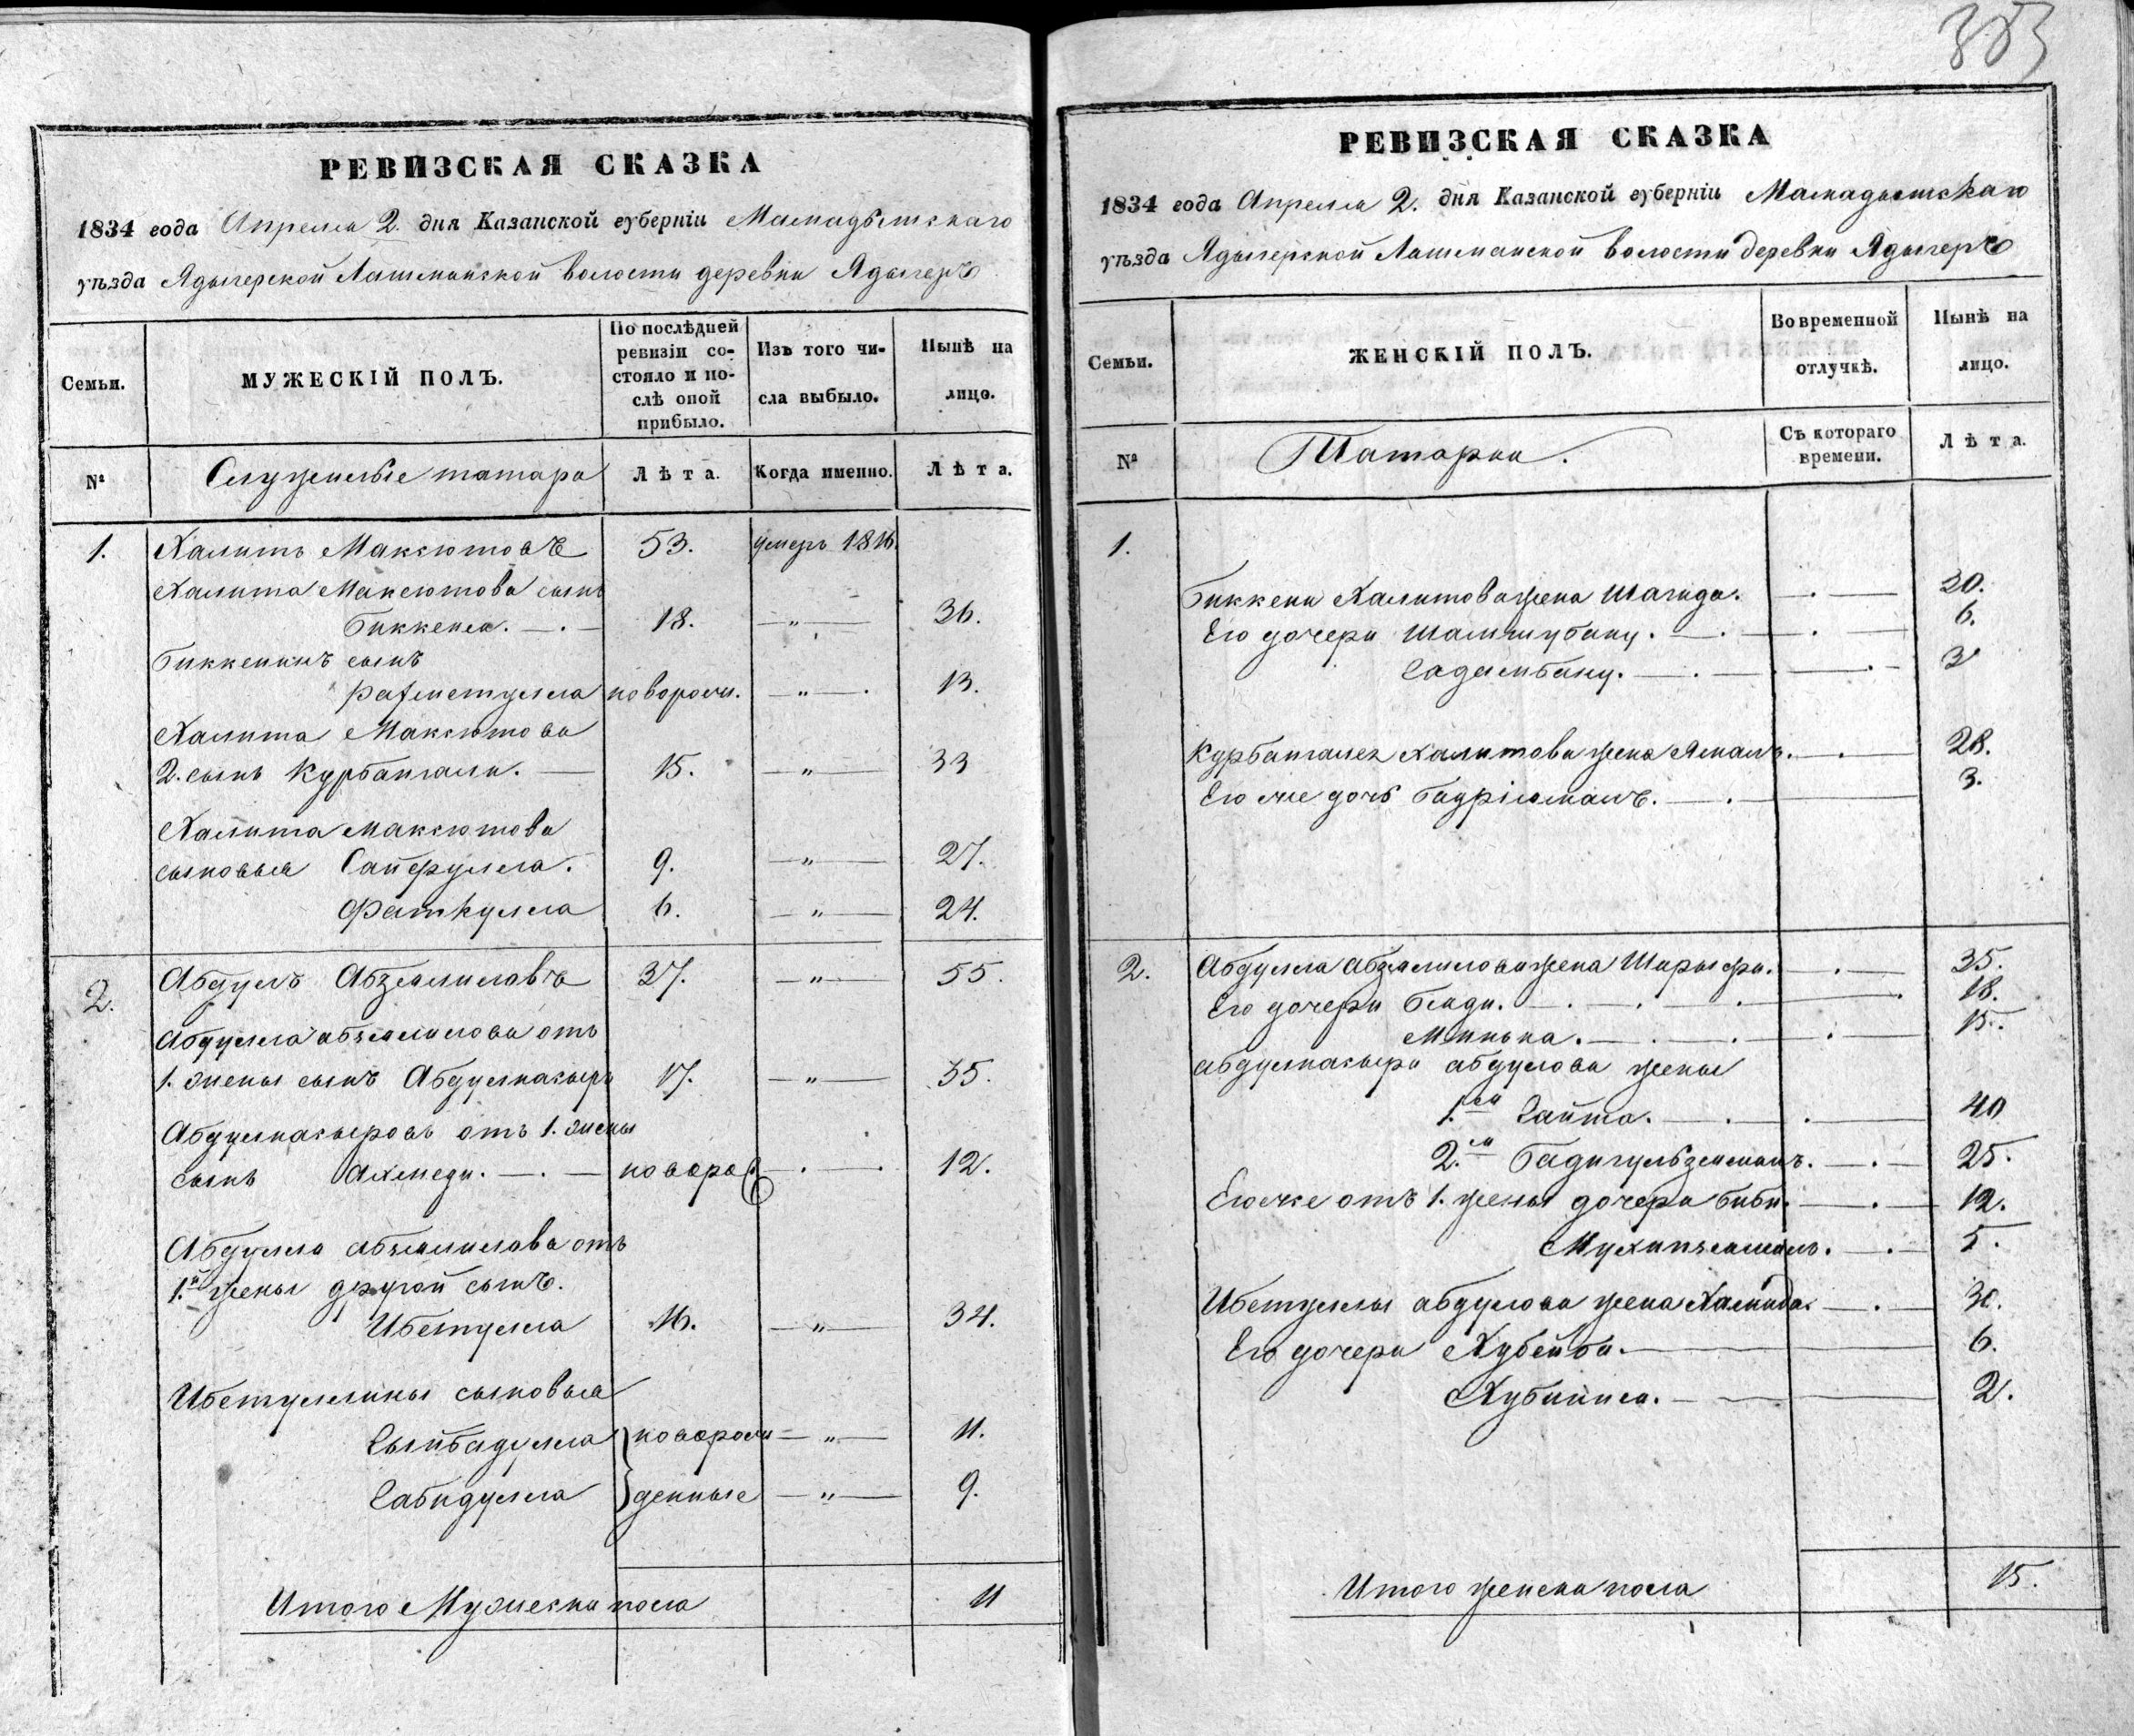 383
РЕВИЗСКАЯ СКАЗКА
1834 года Апреля 2. дня Казанской губерніи Мамадышскаго
уѣзда Ядыгерской Лашманской волости деревни Ядыгеръ
Семьи.
МУЖЕСКІЙ ПОЛЪ.
По послѣдней ревизіи со-
стояло и по-
слѣ оной
прибыло.
Изъ того чи-
сла выбыло.
Нынѣ на
лицо.
№
Служилые татара
Лѣта.
Когда именно.
Лѣта.
1. Халитъ Максютовъ 53. умеръ 1816.
Халита Максютова сынъ
Биккеня. 18. — „ — 36.
Биккенинъ сынъ
Рахметулла новорож. — „ — 13.
Халита Максютова
2. сынъ Курбангали. 15. — „ — 33
Халита Максютова
сыновья Сайфулла. 9. — „ — 27.
Фаткулла 6. — „ — 24.
2. Абдулъ Абзелиловъ 37. — „ — 55.
Абдулла абзелилова отъ
1. жены сынъ Абдулнасыръ 17. — „ — 35.
Абдулнасыровъ отъ 1. жены
сынъ Ахмеди. новоро 12.
Абдулла абзелилова отъ
1.й жены другой сынъ.
Ибетулла 16. — „ — 34.
Ибетуллины сыновья
Сыйбадулла новорож — „ — 11.
Сабидулла денные — „ — 9.
Итого Мужеска пола 11
РЕВИЗСКАЯ СКАЗКА
1834 года Апреля 2. дня Казанской губерніи Мамадышскаго
уѣзда Ядыгерской Лашманской волости деревни Ядыгеръ
Семьи.
ЖЕНСКІЙ ПОЛЪ.
Во временной
отлучкѣ.
Нынѣ на
лицо.
№
Татарки.
Съ котораго
времени.
Лѣта.
1.
Биккени Халитова жена Шагида. 30.
Его дочери Шамшубану. 6.
Садембану. 3
Курбангалея Халитова жена Ямалъ. 28.
Его же дочь Бадріюмалъ. 3.
2. Абдулла Абзелилова жена Шарыфа. 35.
Его дочери Бляди. 18.
Минька. 15.
абдулнасыра абдулова жены
1.ая Сайта. 40
2.ая Бадигульземалъ. 25.
Его же отъ 1. жены дочери Биби. 12.
Мухипземалъ. 5.
Ибетуллы абдулова жена Халида. 30.
Его дочери Хубейба. 6.
Хубийпа. 2.
Итого женска пола 15.